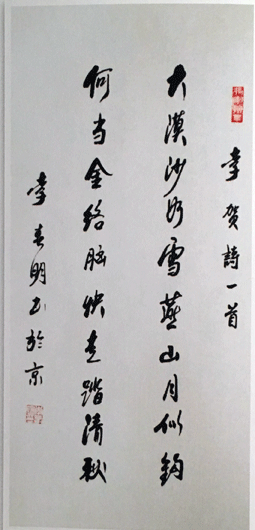 李贺詩一首
大漠沙如雪燕山月似鈎
何当金络脑快走踏清秋
李春明书於京